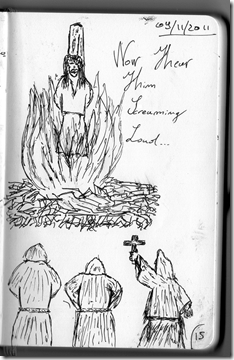 09/11/2011
Now I hear
Him
Screaming
Loud...
15